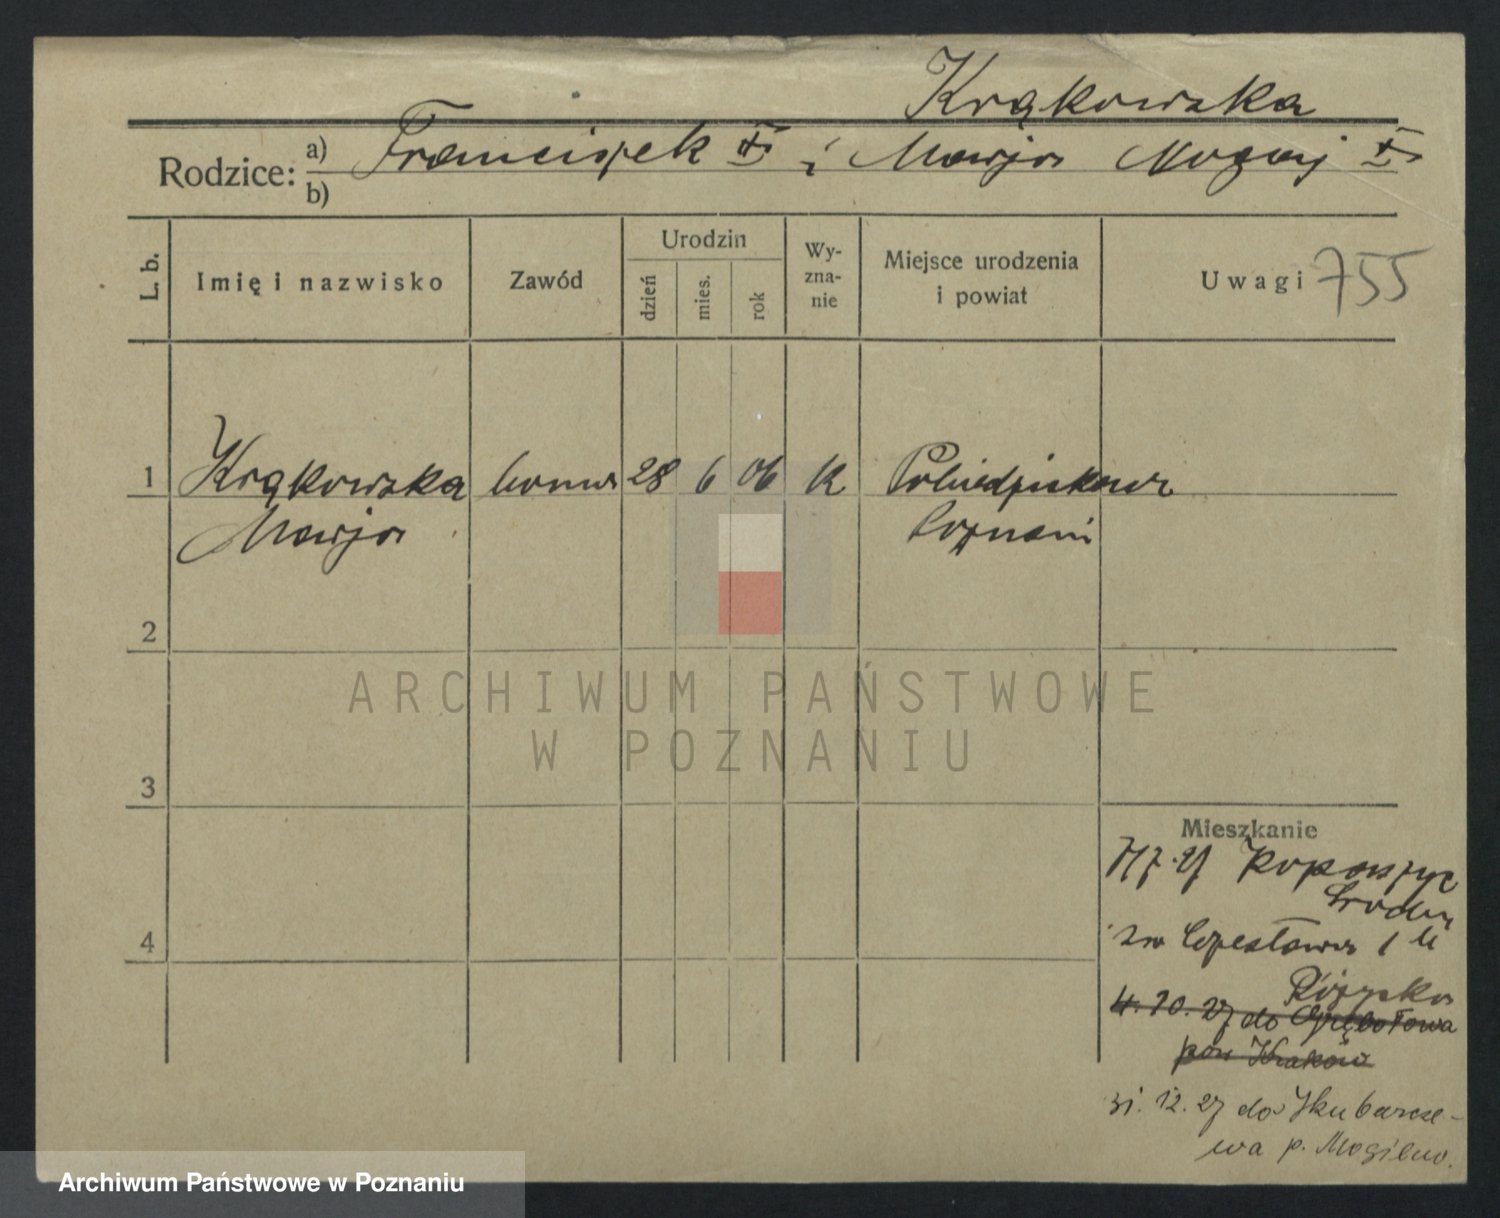 Krąkowska
Rodzice: a) Franciszek i Marja Nogaj
b)
L. b.
Imię i nazwisko
Zawód
Urodzin
dzień
mies.
rok
Wy-
zna-
nie
Miejsce urodzenia
i powiat
Uwagi 755
1 Krąkowska bona 28 6 06 K Pobiedziska
Marja Poznań
2
ARCHIWUM PAŃSTWOWE
W POZNANIU
3
Mieszkanie
Środa
4
Czesława 1
4. 10. 27 do
pow Kraków
31. 12. 27 do Skubarcze-
wa p. Mogilno.
Archiwum Państwowe w Poznaniu